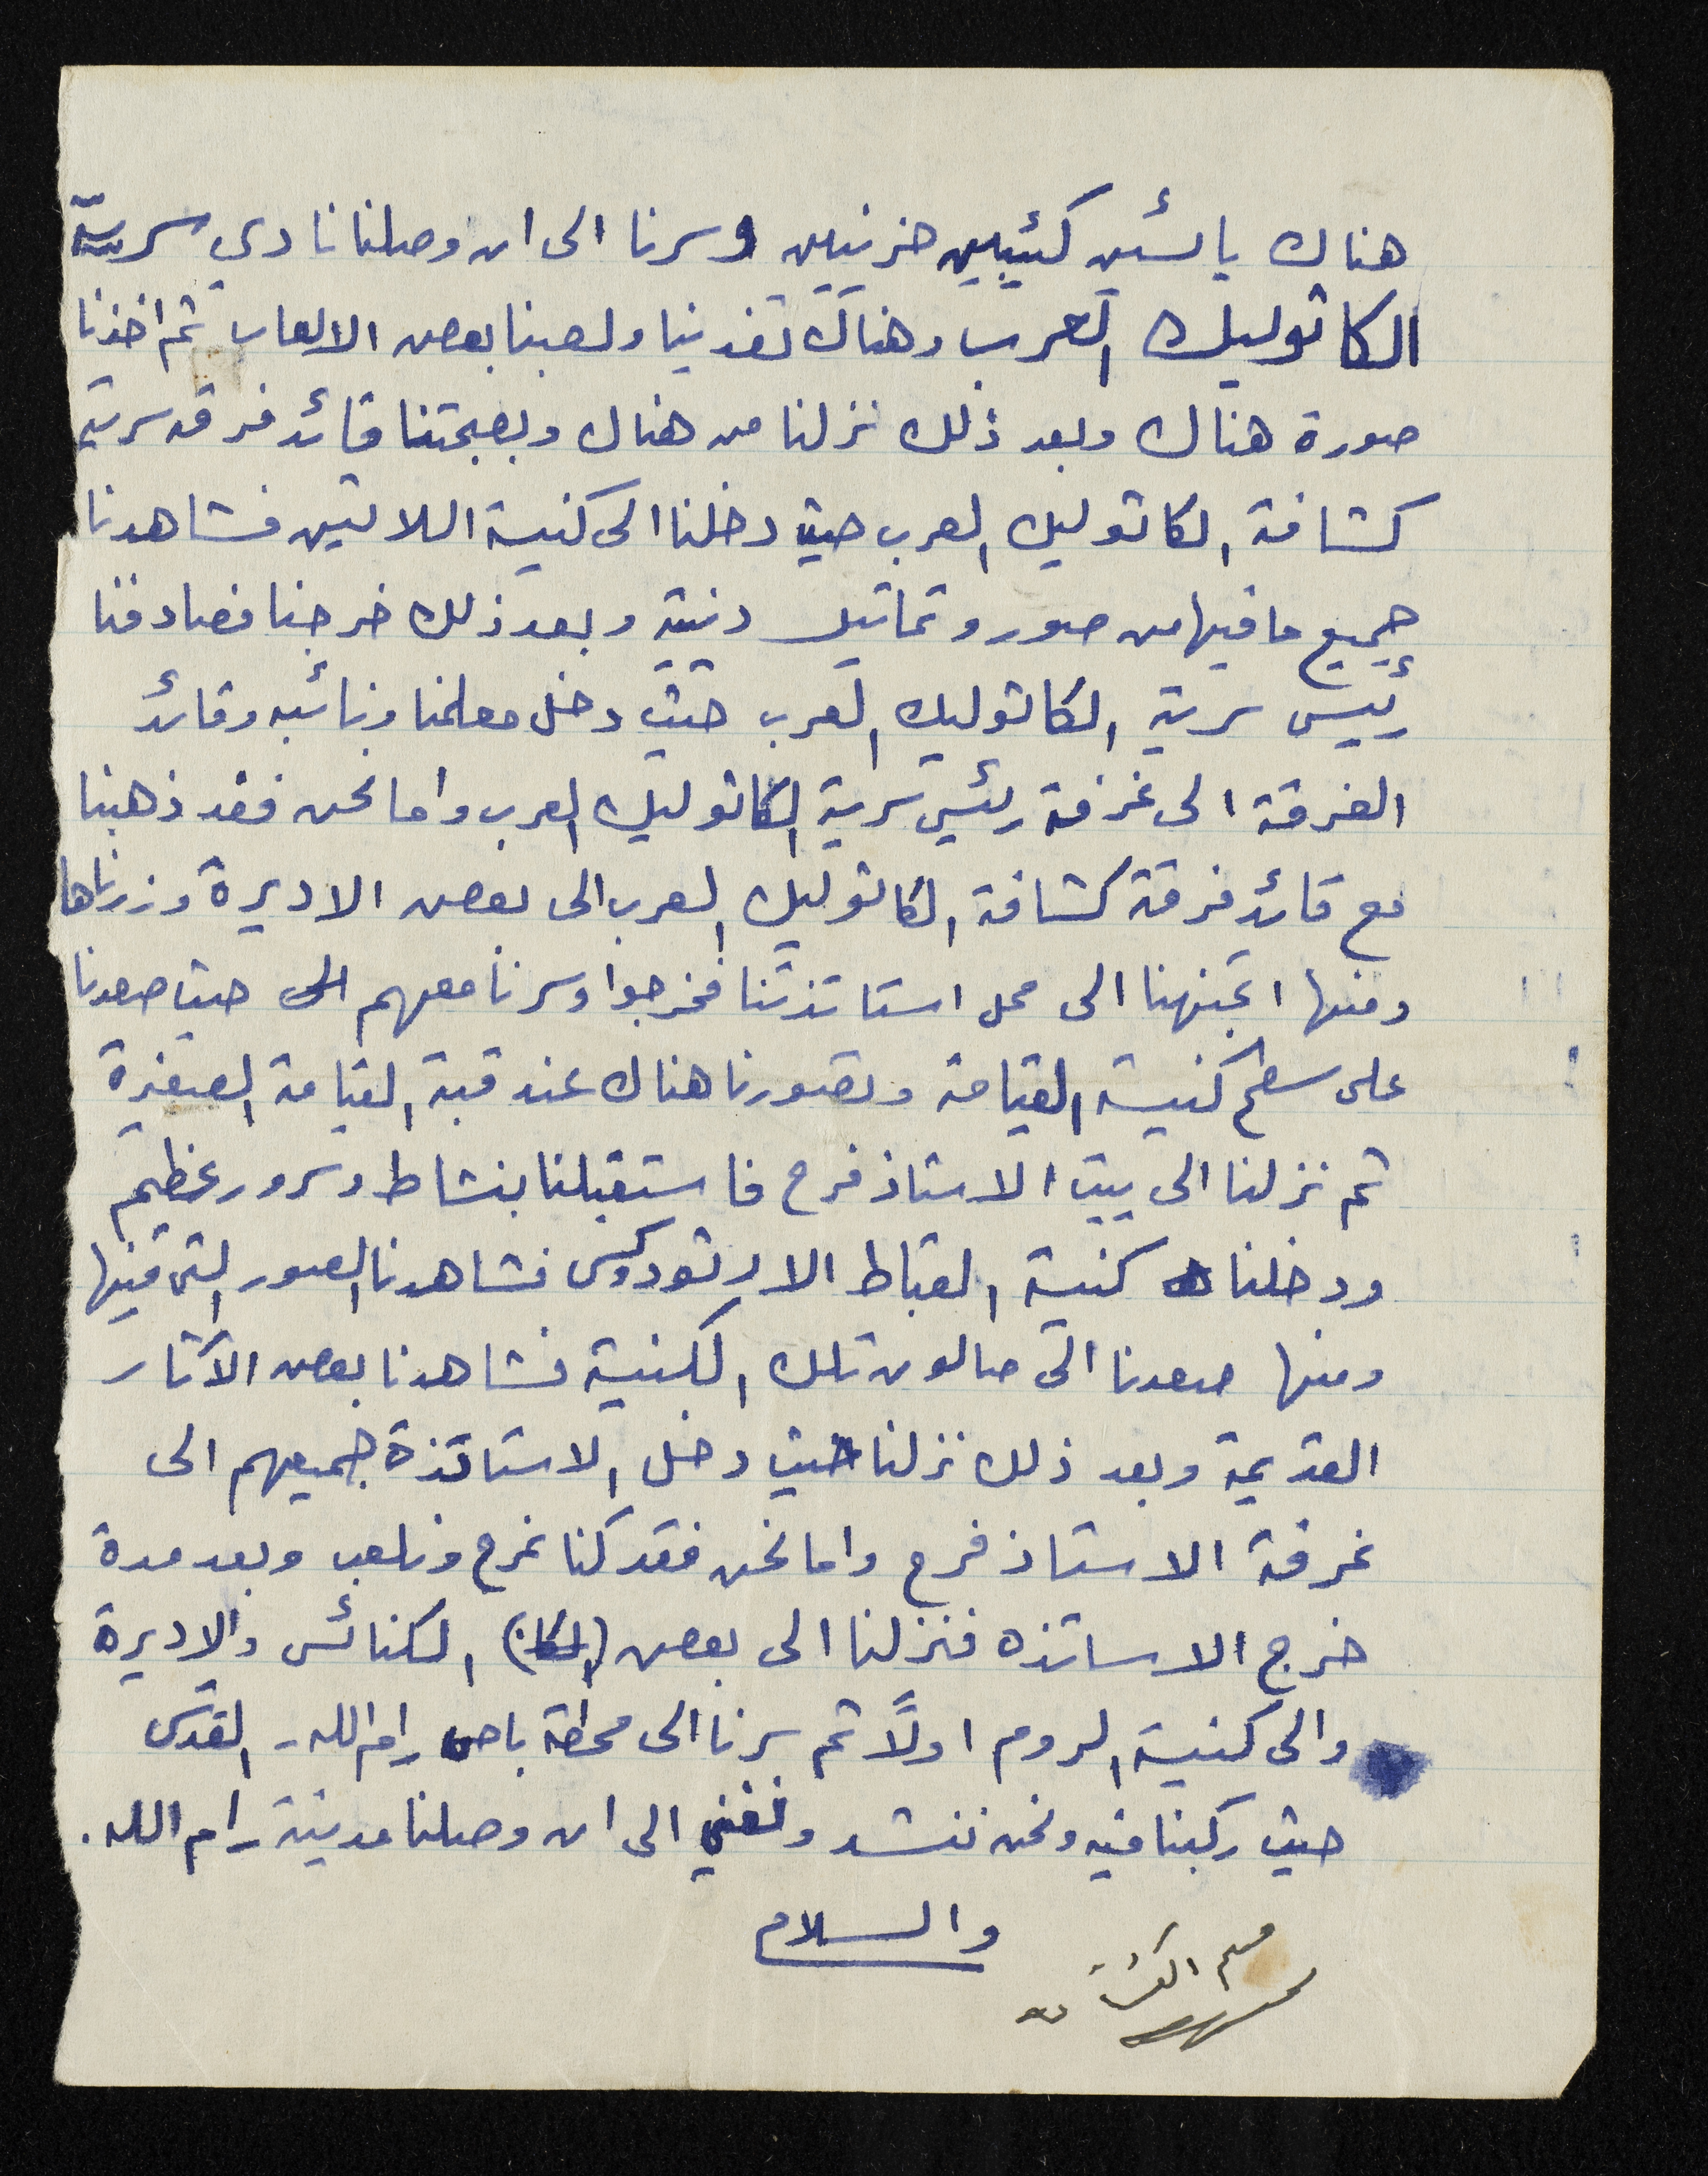 هناك يائسين كئيبين حزينين وسرنا الى ان وصلنا نادي سرية
الكاثوليك العرب وهناك تغدينا ولعبنا بعض الالعاب ثم اخذنا
صورة هناك وبعد ذلك نزلنا من هناك وبصحبتنا قائد فرقة سرية
كشافة الكاثوليك العرب حيث دخلنا الى كنيسة اللاتين فشاهدنا
جميع ما فيها من صور وتماثيل دنية وبعد ذلك خرجنا فصادفنا
رئيس سرية الكاثوليك العرب حيث دخل معلمنا ونائبه وقائد
الفرقة الى غرفة رئيس سرية الكاثوليك العرب واما نحن فقد ذهبنا
مع قائد فرقة كشافة الكاثوليك العرب الى بعض الاديرة وزرناها
ومنها اتجهنا الى محل استاتذتنا فخرجوا وسرنا معهم الى حيث صعدنا
على سطح كنيسة القيامة وتصورنا هناك عند قبة القيامة الصغيرة
ثم نزلنا الى بيت الاستاذ فرح فاستقبلنا بنشاط وسرور عظيم
ودخلنا كنيسة القباط الارثودوكس فشاهدنا الصور التي فيها
ومنها صعدنا الى صالون تلك الكنيسة فشاهدنا بعض الآثار
القديمة وبعد ذلك نزلنا حيث دخل الاستاتذة جميعهم الى
غرفة الاستاذ فرح واما نحن فقد كنا نمرح ونلعب وبعد مدة
خرج الاساتذه فنزلنا الى بعض (الكا) الكنائس والاديرة
والى كنيسة الروم اولاً ثم سرنا الى محطة باص رام الله - القدس
حيث ركبنا فيه ونحن ننشد ونغني الى ان وصلنا مدينة رام الله.
والسلام